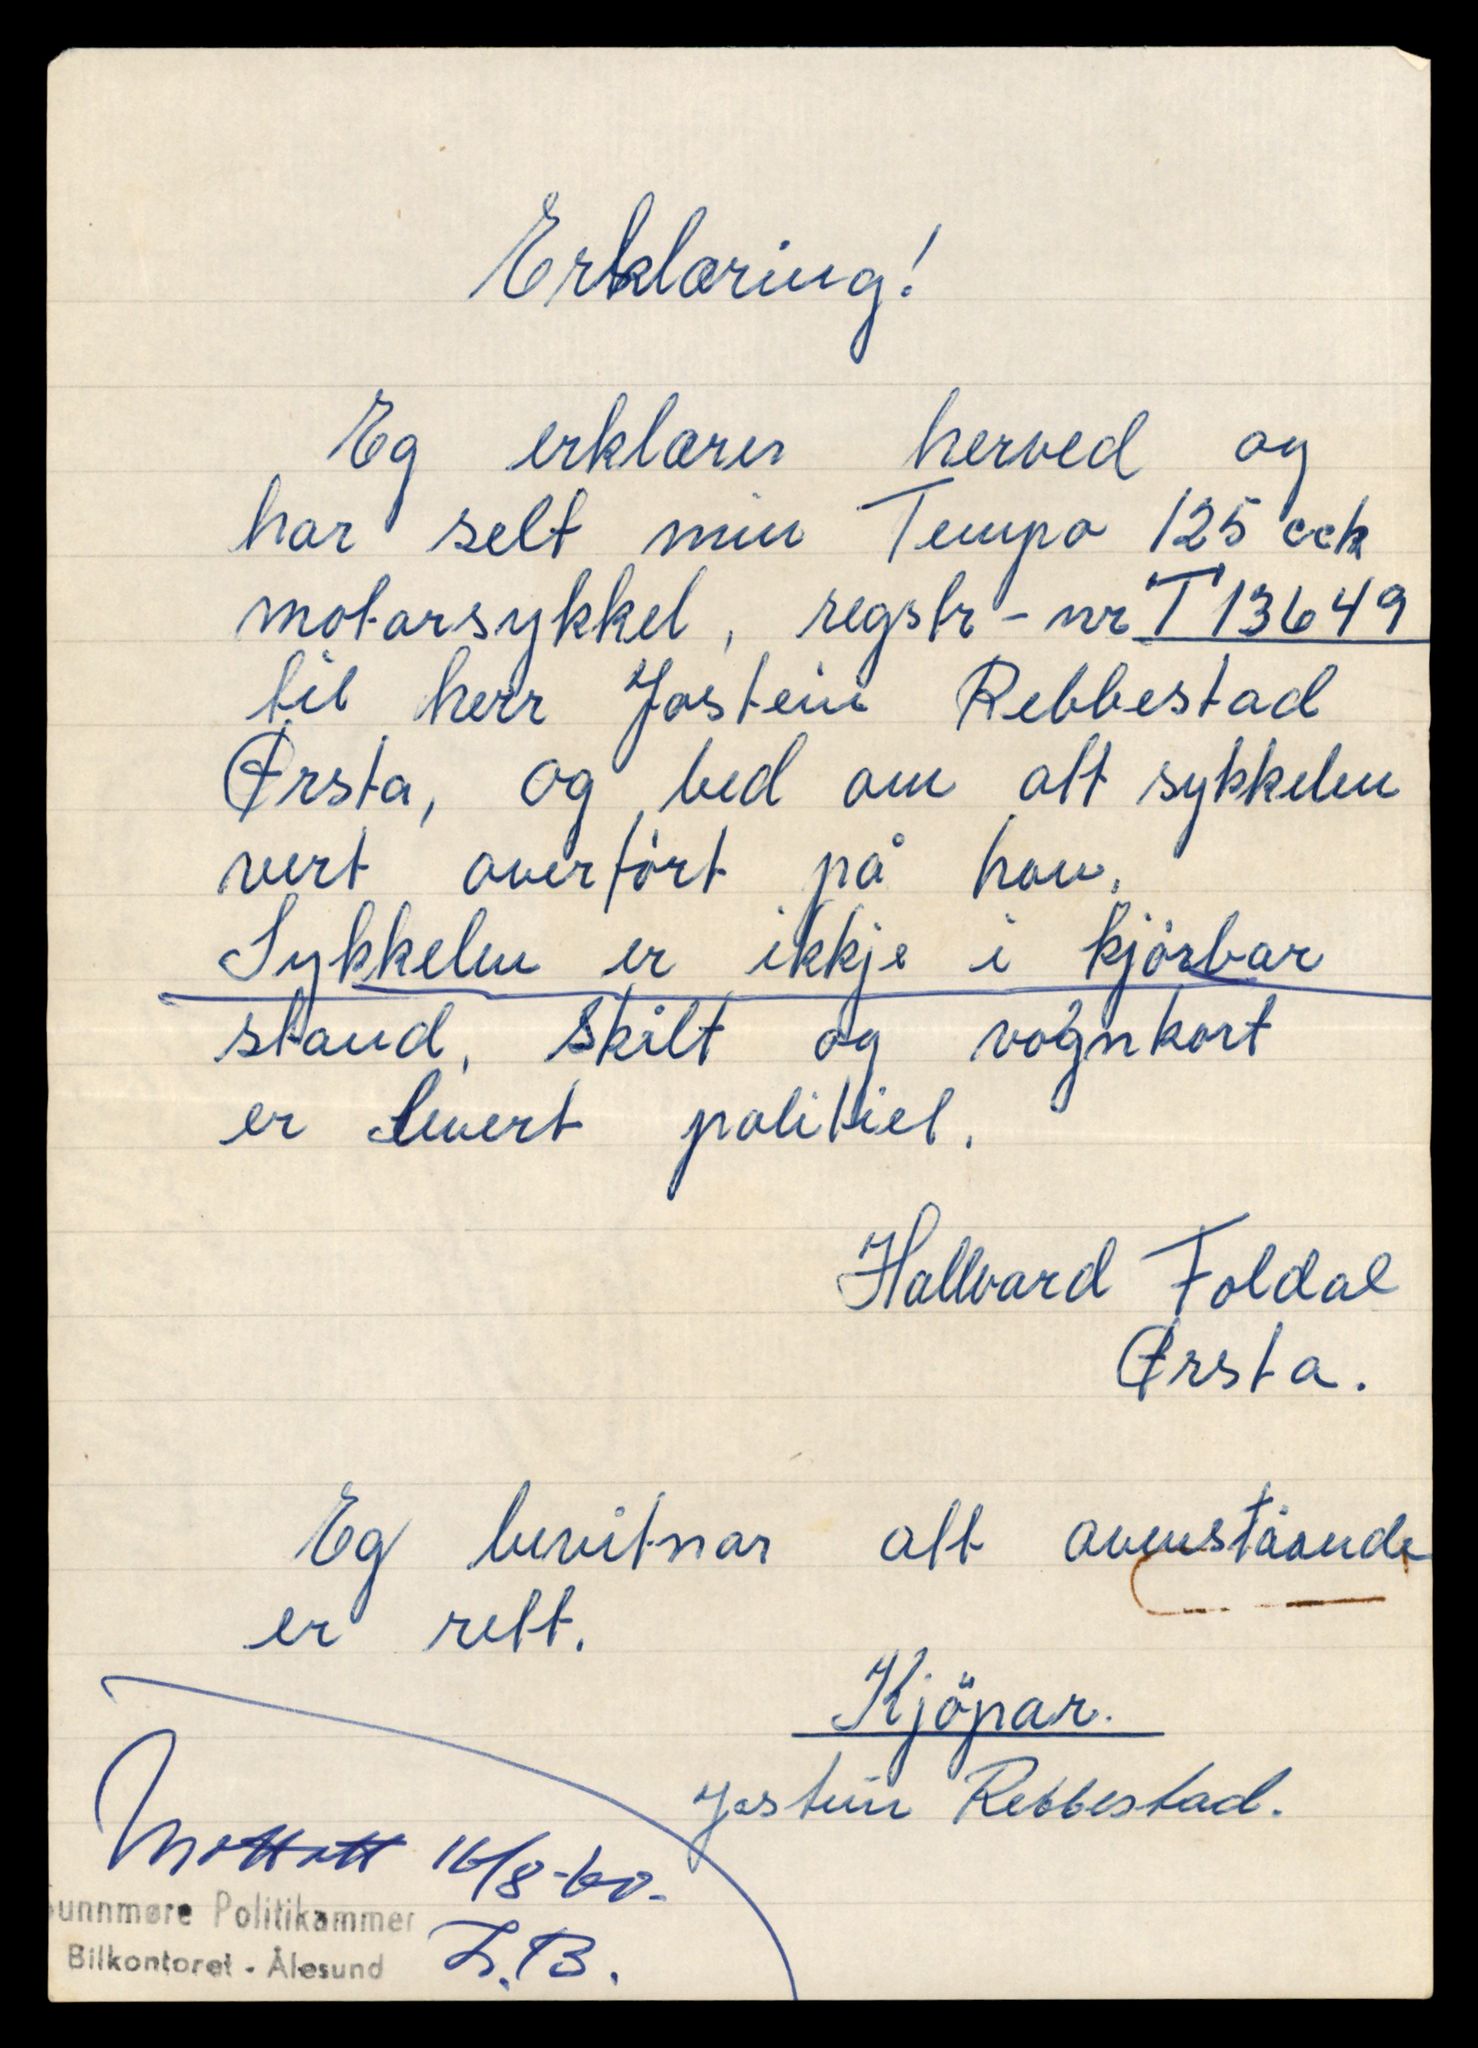 Erklæring!
Eg erklærer herved og
har selt min Tempo 125 cck
motorsykkel, regstr-nr T13649
til herr Jostein Rebbestad
Ørsta, og bed om att sykkelen
vert overført på han.
Sykkelen er ikkje i kjörbar
stand. Skilt og vognkort
er levert politiet.
Hallvard Foldal
Ørsta.
Eg bevitnar att ovenståande
er rett.
Kjöpar.
Jostein Rebbestad.
Mottatt 16/8-60.
Sunnmøre Politikammer
Bilkontoret - Ålesund
L.B.